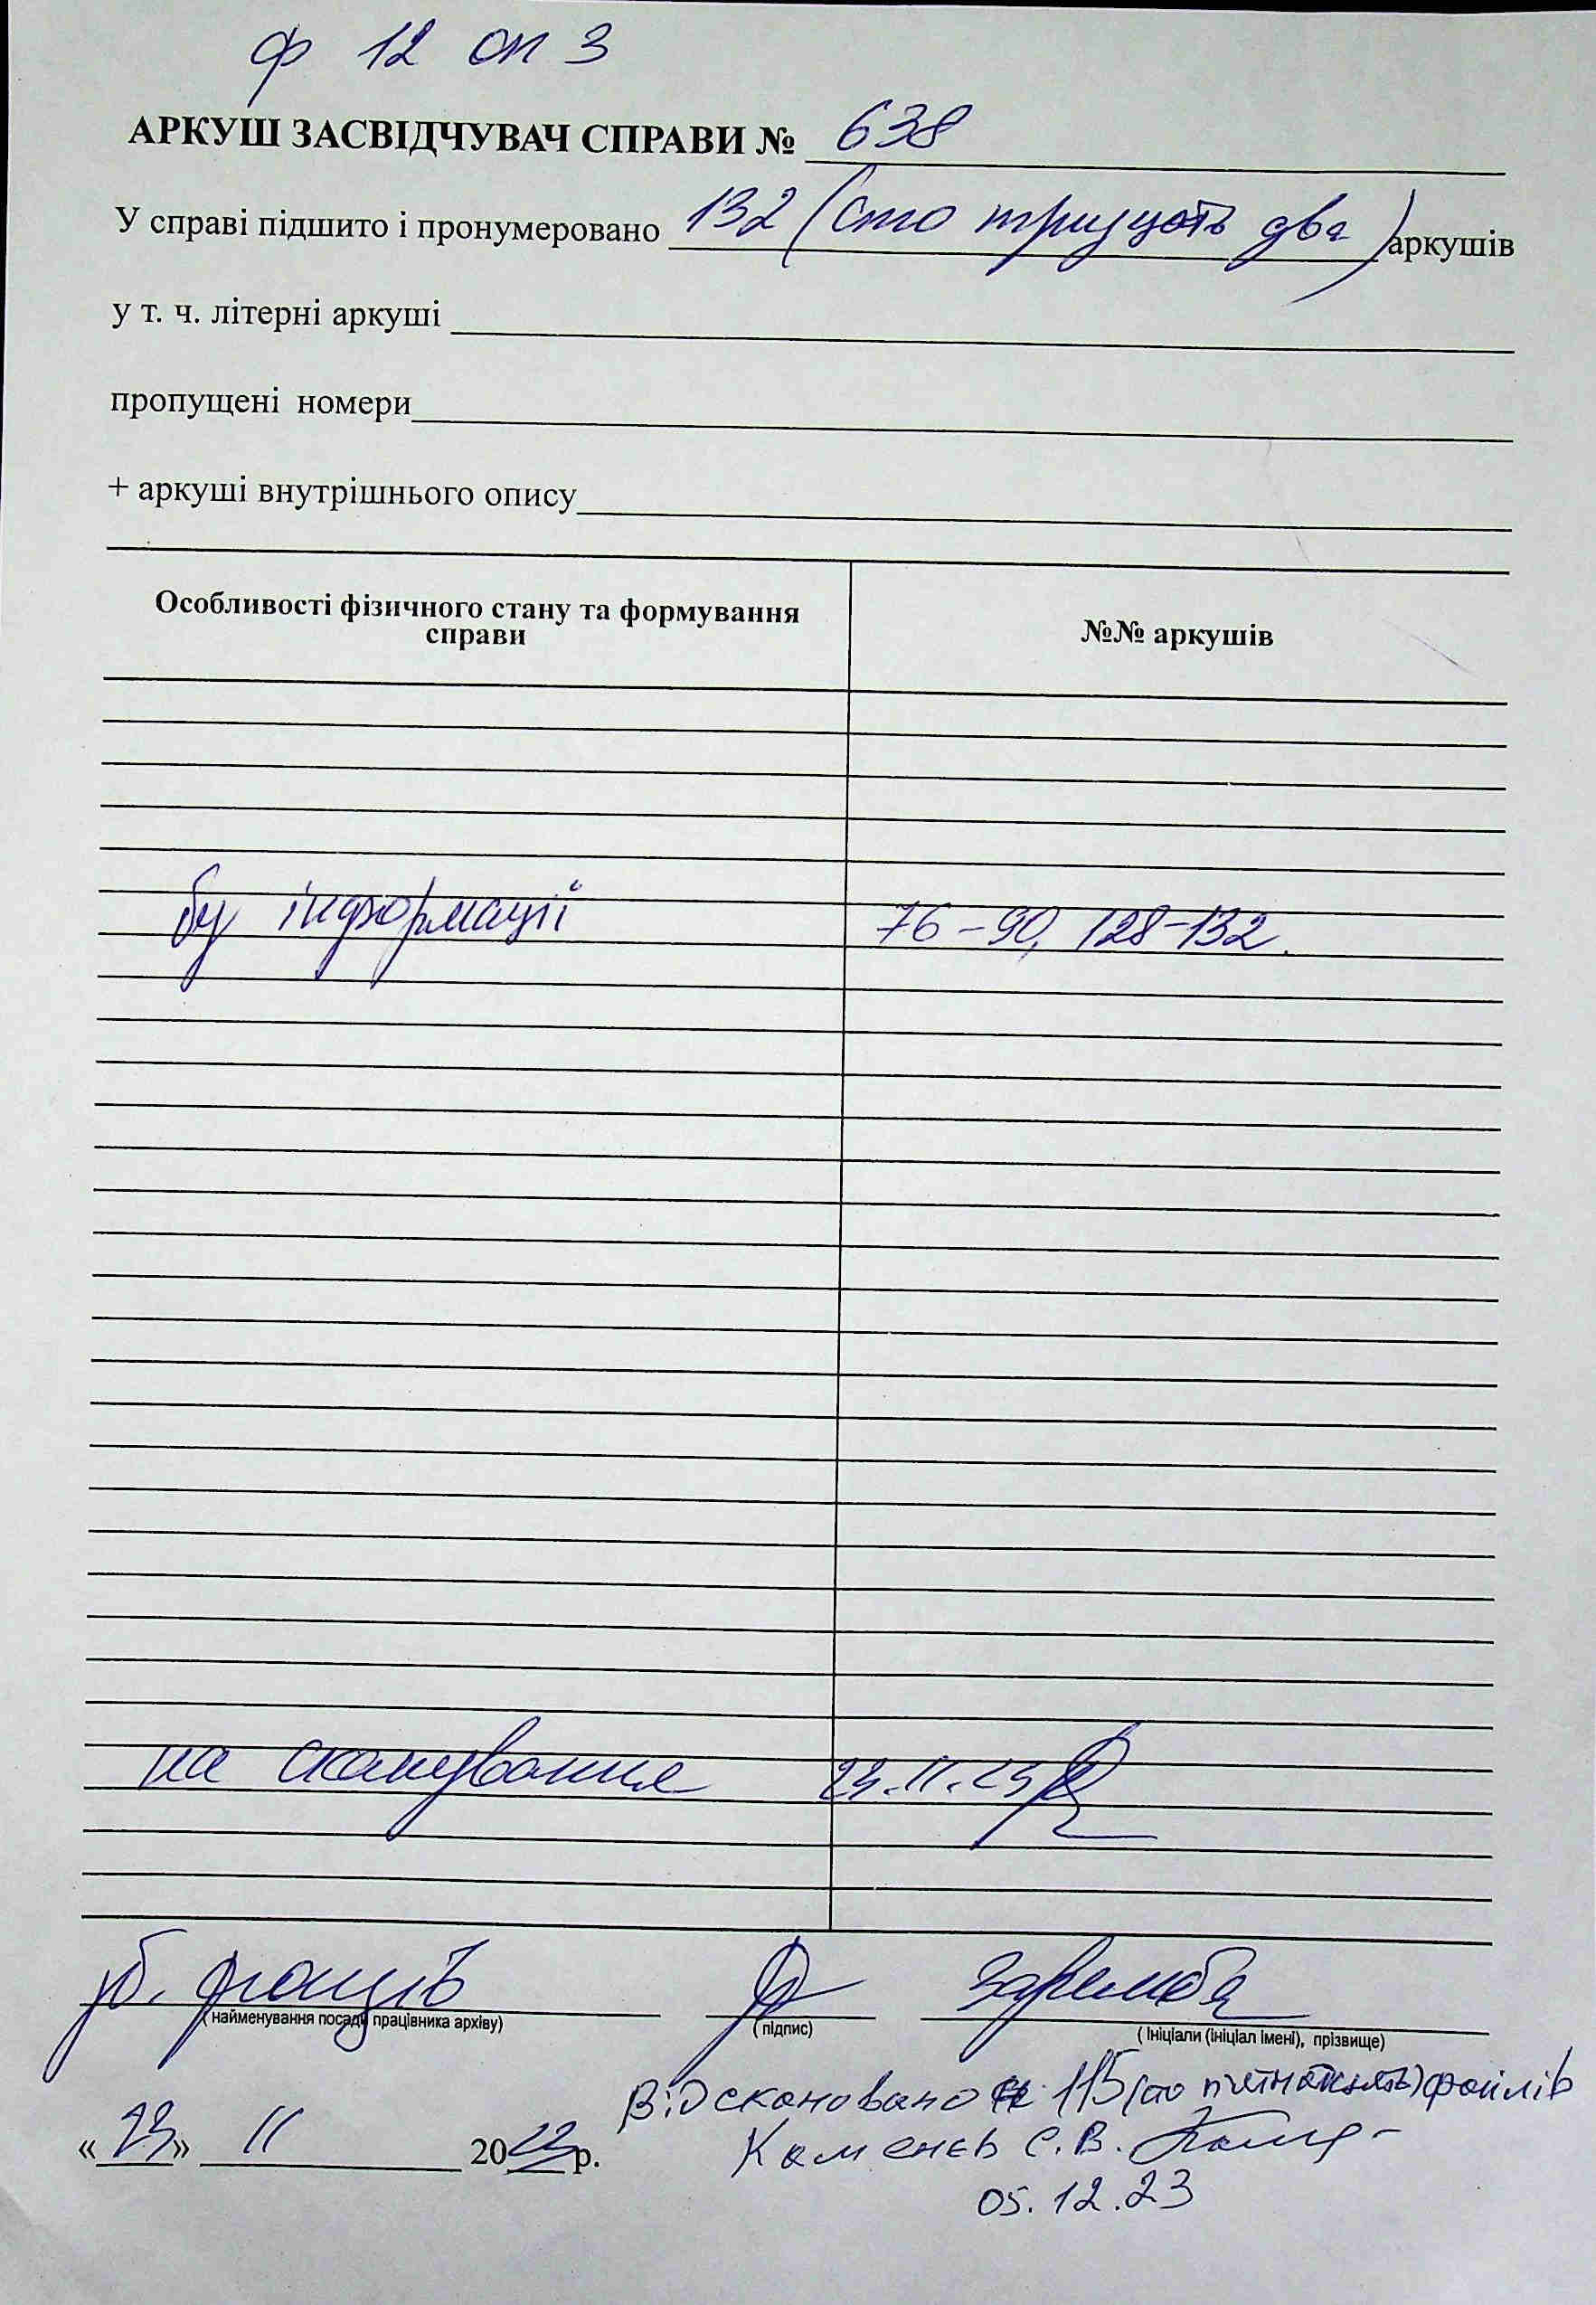 ф 12 оп 3
АРКУШ ЗАСВІДЧУВАЧ СПРАВИ № 638
У справі підшито і пронумеровано 132 (сто тридцять два) аркушів
у т. ч. літерні аркуші
пропущені номери
+ аркуші внутрішнього опису
Особливості фізичного стану та формування справи
№№ аркушів
інформації 76-90, 128-132.
на сканування 23.11.23
Заремба
(найменування посади працівника архіву) (підпис) (ініціали (ініціал імені), прізвище)
Відскановано 115 (сто файлів
«23» 11 2023 р.
Каменєв С.В.
05.12.23